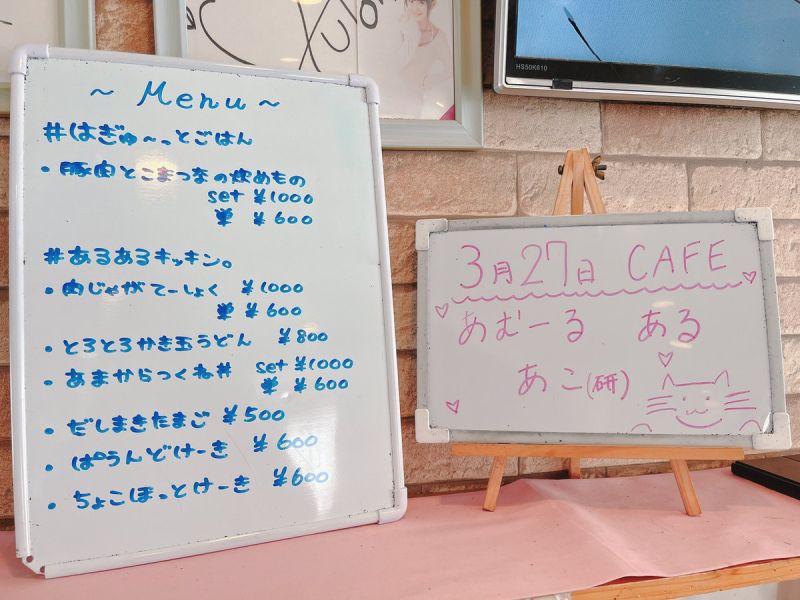 ~ Menu ~
#はぎゅ~っとごはん
・豚肉とこまつ菜の炒めもの
set ¥1000
単 ¥600
#あるあるキッキン。
・肉じゃがてーしょく ¥1000
単 ¥600
・とろとろかき玉うどん ¥800
・あまからつくね丼 set ¥1000
単 ¥600
・だしまきたまご ¥500
・ぱうんどけーき ¥600
・ちょこほっとけーき ¥600
HS50K610
3月27日 CAFE
あむーる ある
あこ(研)